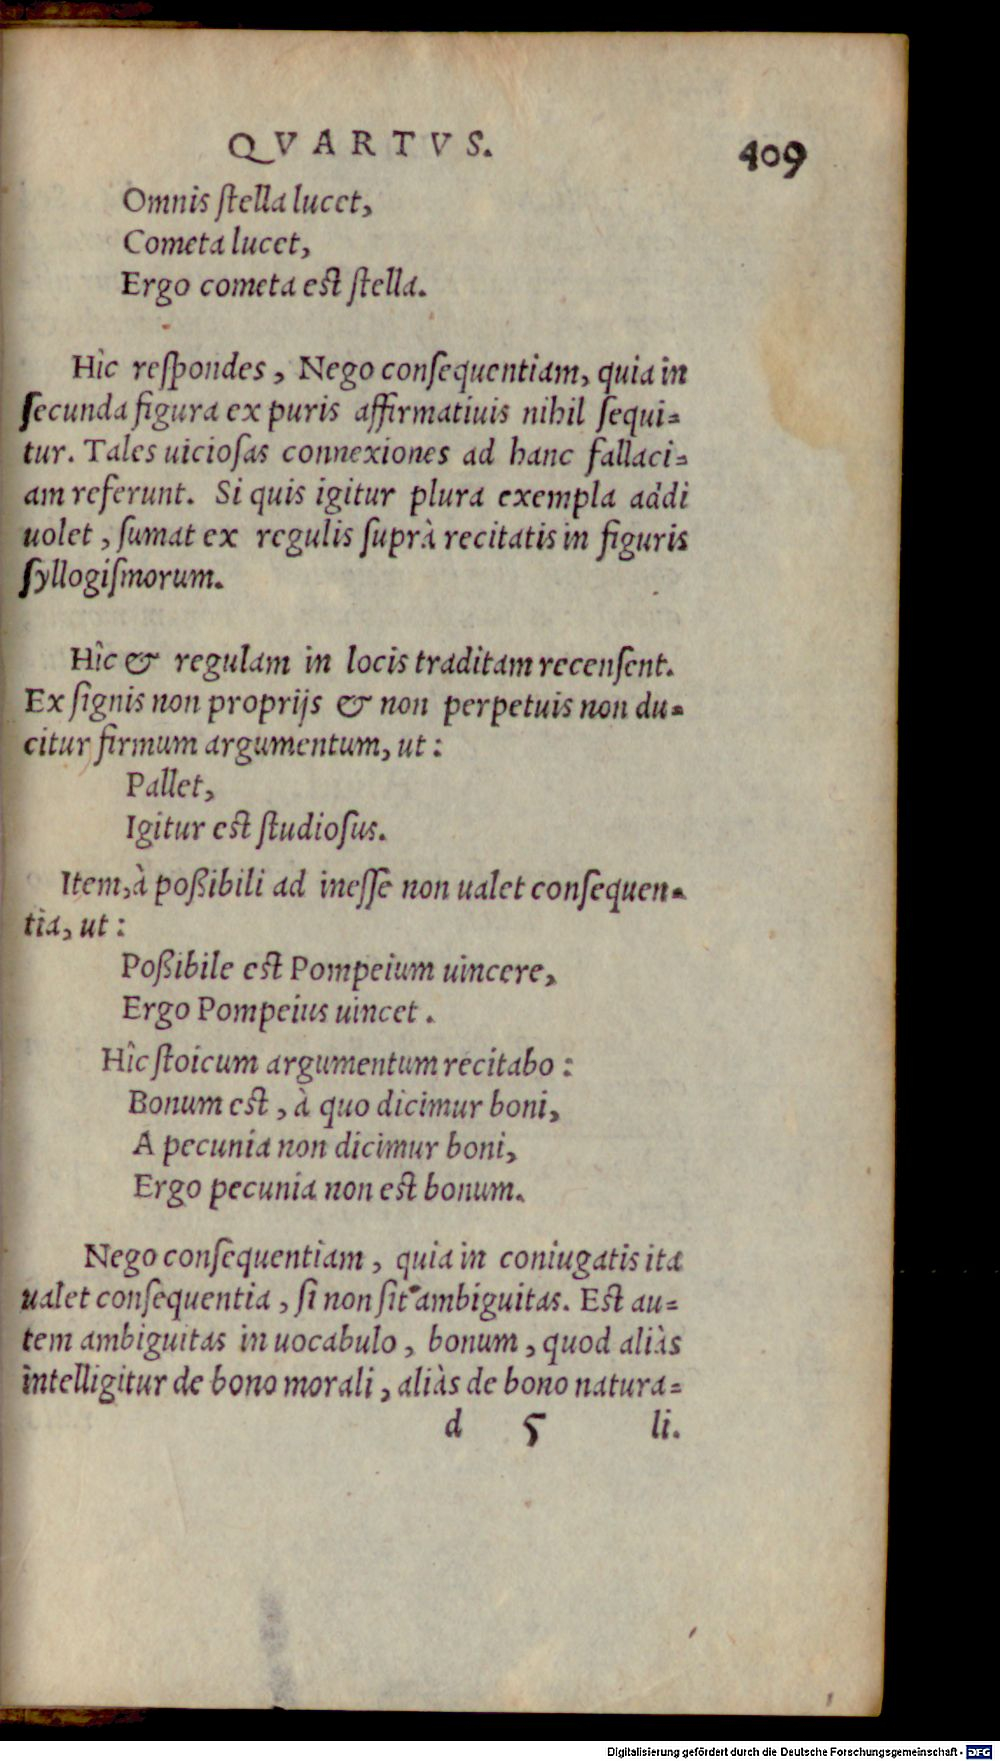 QVARTVS. 409
Omnis ſtella lucet,
Cometa lucet,
Ergo cometa est ſtella.
Hîc reſpondes, Nego conſequentiam, quia in
ſecunda figura ex puris affirmatiuis nihil ſequi=
tur. Tales uicioſas connexiones ad hanc fallaci=
am referunt. Si quis igitur plura exempla addi
uolet, ſumat ex regulis ſuprà recitatis in figuris
ſyllogiſmorum.
Hîc & regulam in locis traditam recenſent.
Ex ſignis non proprijs & non perpetuis non du=
citur firmum argumentum, ut:
Pallet,
Igitur est ſtudioſus.
Item, à poßibili ad ineſſe non ualet conſequen=
tia, ut:
Poßibile est Pompeium uincere,
Ergo Pompeius uincet.
Hîc ſtoicum argumentum recitabo:
Bonum est, à quo dicimur boni,
A pecunia non dicimur boni,
Ergo pecunia non est bonum.
Nego conſequentiam, quia in coniugatis ita
ualet conſequentia, ſi non ſit ambiguitas. Est au=
tem ambiguitas in uocabulo, bonum, quod aliàs
intelligitur de bono morali, aliàs de bono natura=
d 5 li.
Digitalisierung gefördert durch die Deutsche Forschungsgemeinschaft - DFG